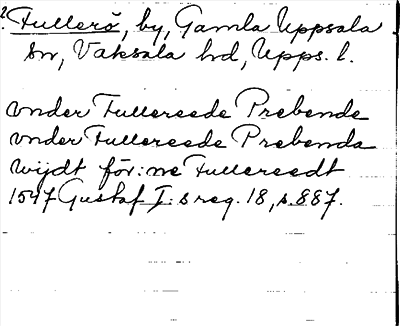 2. Fullerö, by, Gamla Uppsala
sn, Vaksala hd, Upps. l.
vnder Fullereede Prebende
vnder Fullereede Prebenda
wijdt för:ne Fullereedt
1547 Gustaf I:s reg. 18, s. 887.